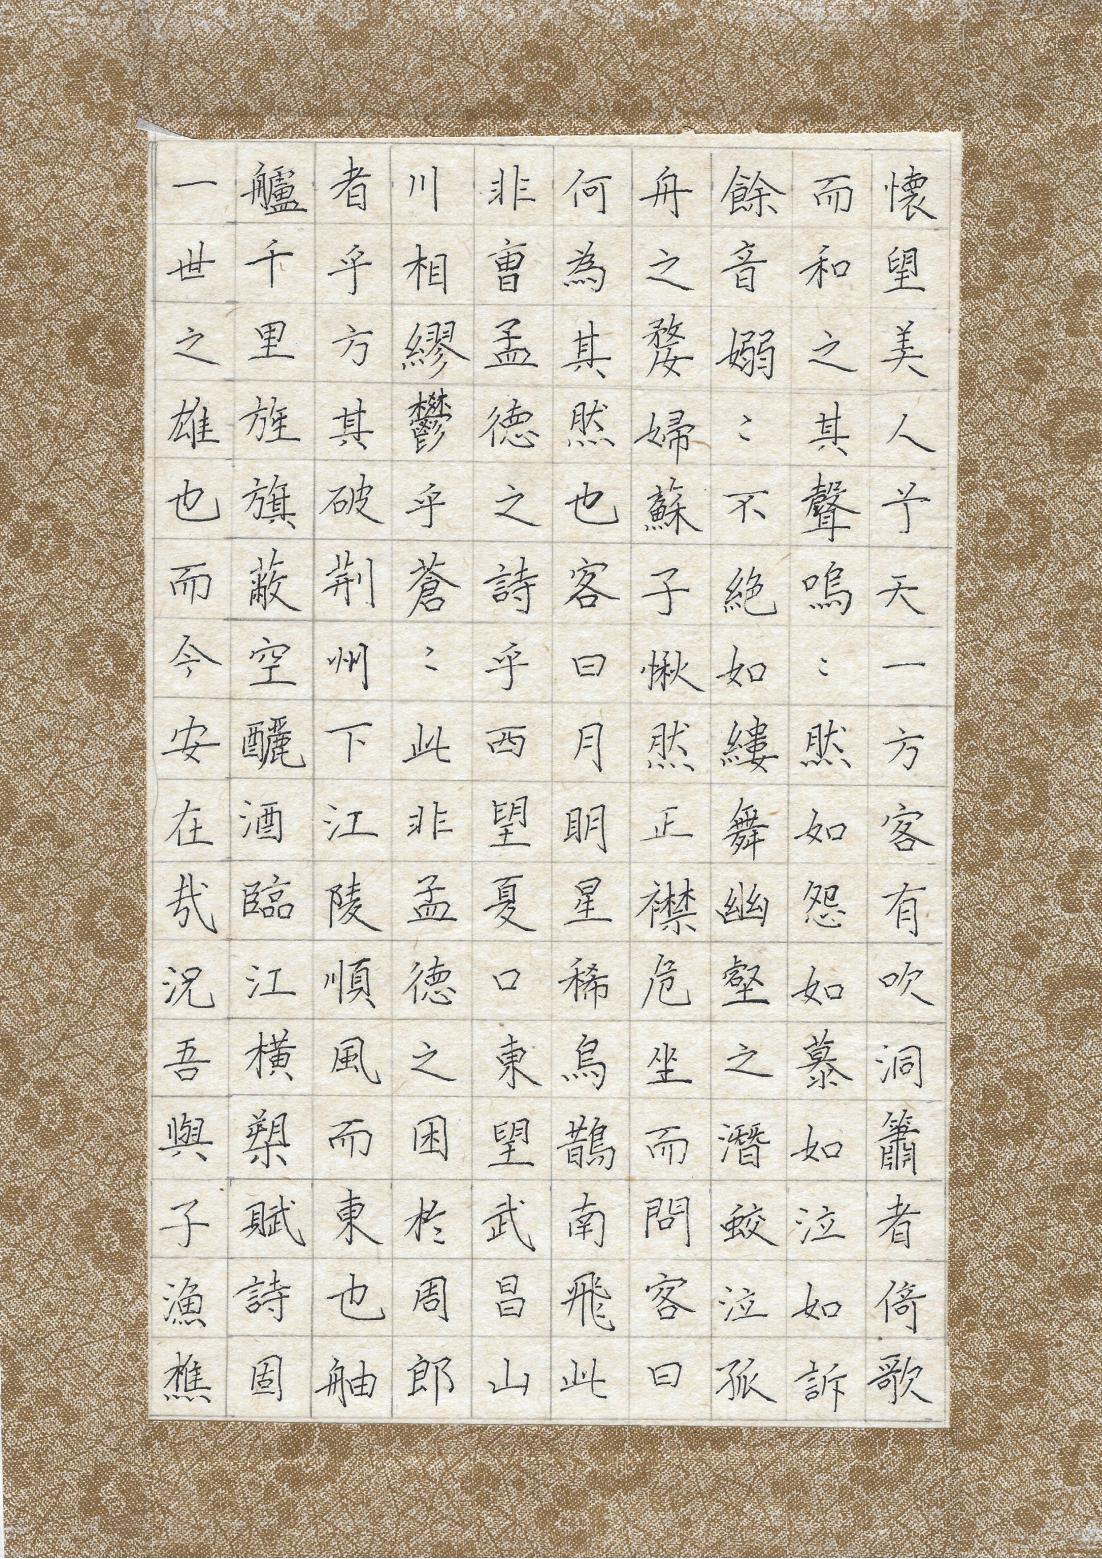 懷望美人兮天一方客有吹洞簫者倚歌
而和之其聲嗚〻然如怨如慕如泣如訴
餘音嫋〻不絕如縷舞幽壑之潛蛟泣孤
舟之嫠婦蘇子愀然正襟危坐而問客曰
何為其然也客曰月明星稀烏鵲南飛此
非曹孟德之詩乎西望夏口東望武昌山
川相繆鬱乎蒼〻此非孟德之困於周郎
者乎方其破荆州下江陵順風而東也舳
艫千里旌旗蔽空釃酒臨江橫槊賦詩固
一世之雄也而今安在哉況吾與子漁樵